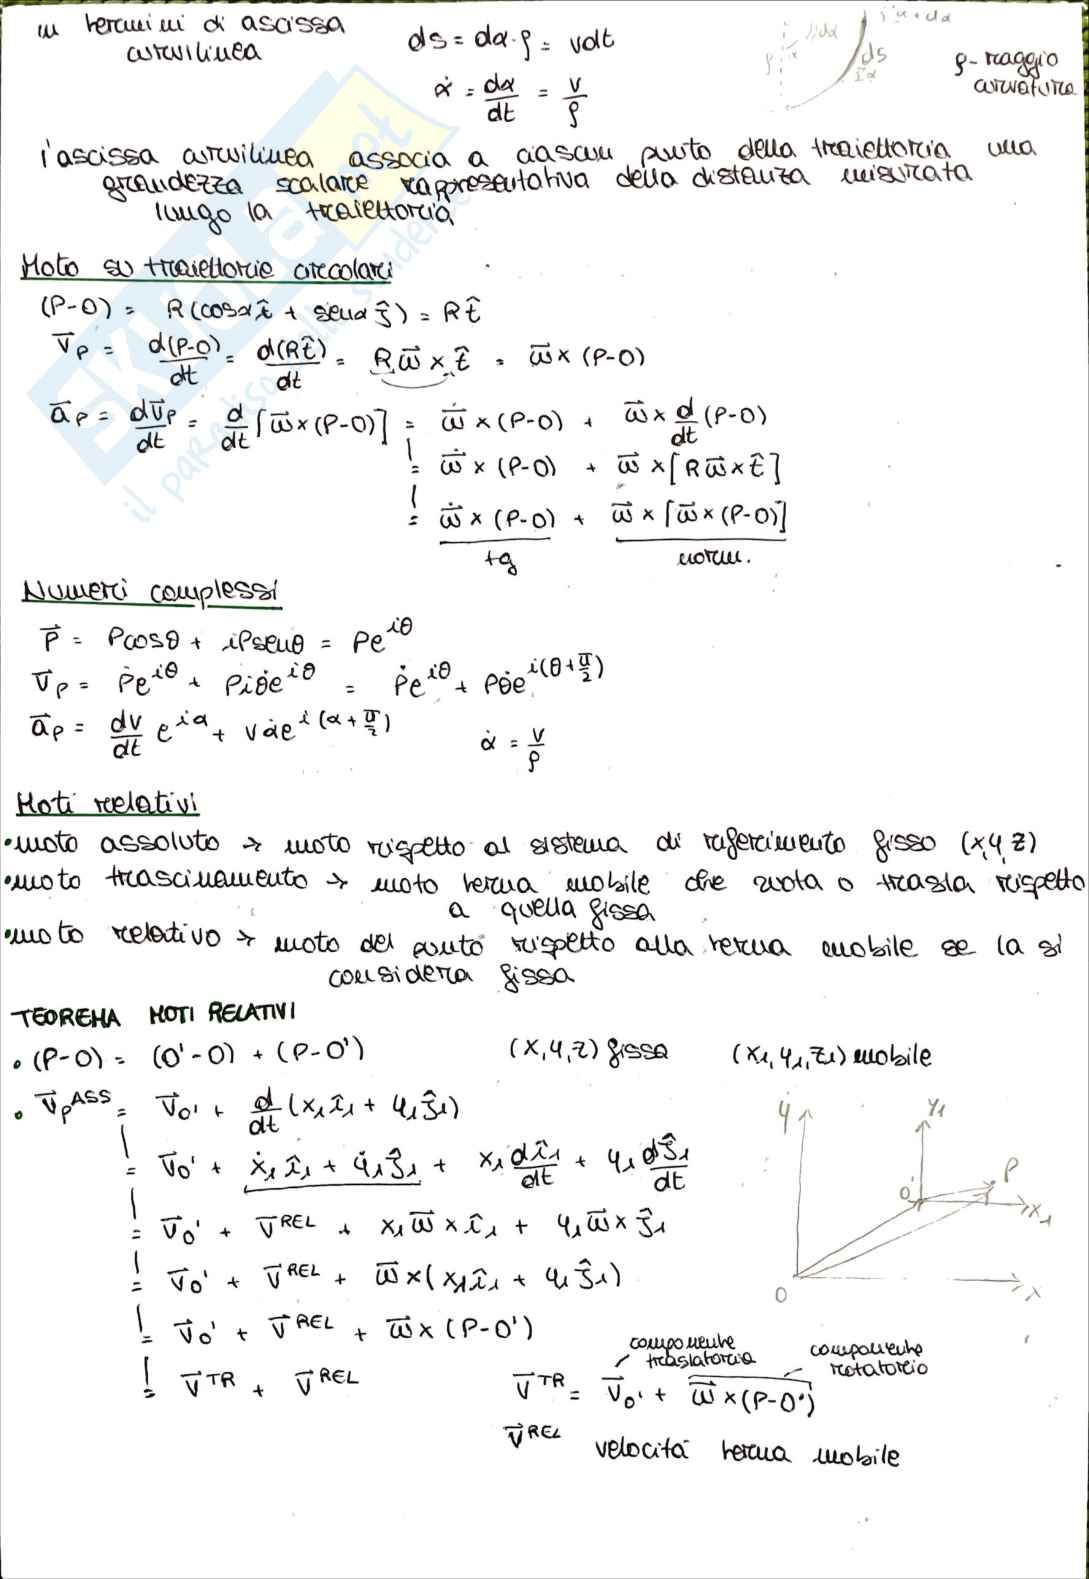 in termini di ascissa curvilinea
ds = dα·ρ = vdt
α̇ = dα/dt = v/ρ
ds
ρ
ρ - raggio curvatura
l'ascissa curvilinea associa a ciascun punto della traiettoria una
grandezza scalare rappresentativa della distanza misurata
lungo la traiettoria
Moto su traiettorie circolari
(P-O) = R(cosα î + senα ĵ) = R t̂
v⃗P = d(P-O)/dt = d(R t̂)/dt = R ω⃗ × t̂ = ω⃗ × (P-O)
a⃗P = dv⃗P/dt = d/dt [ω⃗ × (P-O)] = ω⃗̇ × (P-O) + ω⃗ × d/dt (P-O)
= ω⃗̇ × (P-O) + ω⃗ × [R ω⃗ × t̂]
= ω⃗̇ × (P-O) + ω⃗ × [ω⃗ × (P-O)]
tg norm.
Numeri complessi
P⃗ = Pcosθ + iPsenθ = Pe^iθ
v⃗P = Ṗe^iθ + Piθ̇e^iθ = Ṗe^iθ + Pθ̇e^i(θ+π/2)
a⃗P = dv/dt e^iα + vα̇e^i(α+π/2) α̇ = v/ρ
Moti relativi
•moto assoluto → moto rispetto al sistema di riferimento fisso (x,y,z)
•moto trascinamento → moto terna mobile che ruota o trasla rispetto
a quella fissa
•moto relativo → moto del punto rispetto alla terna mobile se la si
considera fissa
TEOREMA MOTI RELATIVI
• (P-O) = (O'-O) + (P-O') (x,y,z) fissa (x₁,y₁,z₁) mobile
• v⃗P^ASS = v⃗O' + d/dt (x₁î₁ + y₁ĵ₁)
= v⃗O' + ẋ₁î₁ + ẏ₁ĵ₁ + x₁ dî₁/dt + y₁ dĵ₁/dt
= v⃗O' + v⃗^REL + x₁ω⃗ × î₁ + y₁ω⃗ × ĵ₁
= v⃗O' + v⃗^REL + ω⃗ × (x₁î₁ + y₁ĵ₁)
= v⃗O' + v⃗^REL + ω⃗ × (P-O')
= v⃗^TR + v⃗^REL
y
y₁
P
O'
x₁
O
x
componente traslatoria
componente rotatorio
v⃗^TR = v⃗O' + ω⃗ × (P-O')
v⃗^REL velocità terna mobile
SKUOLA.net
il paradiso dello studente